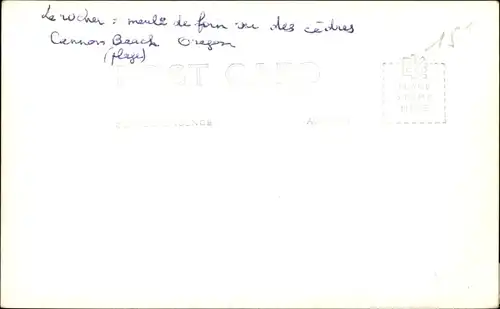 Le rocher : meule de foin vu des cèdres
Cannon Beach Oregon
(plage)
15
POST CARD
PLACE
STAMP
HERE
CORRESPONDENCE ADDRESS